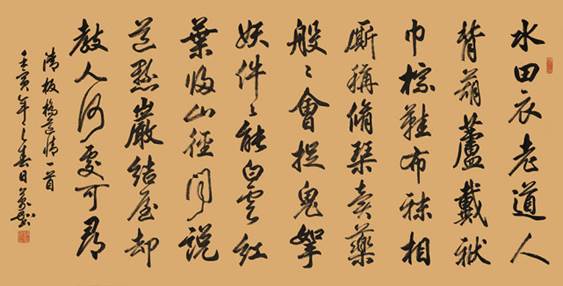 水田衣老道人
背葫蘆戴袱
巾棕鞋布袜相
廝稱脩琴賣藥
般〻會捉鬼拏
妖件〻能白雲紅
葉歸山徑聞說
道懸巖結屋却
教人何處可尋
清板橋道情一首
壬寅年之春日